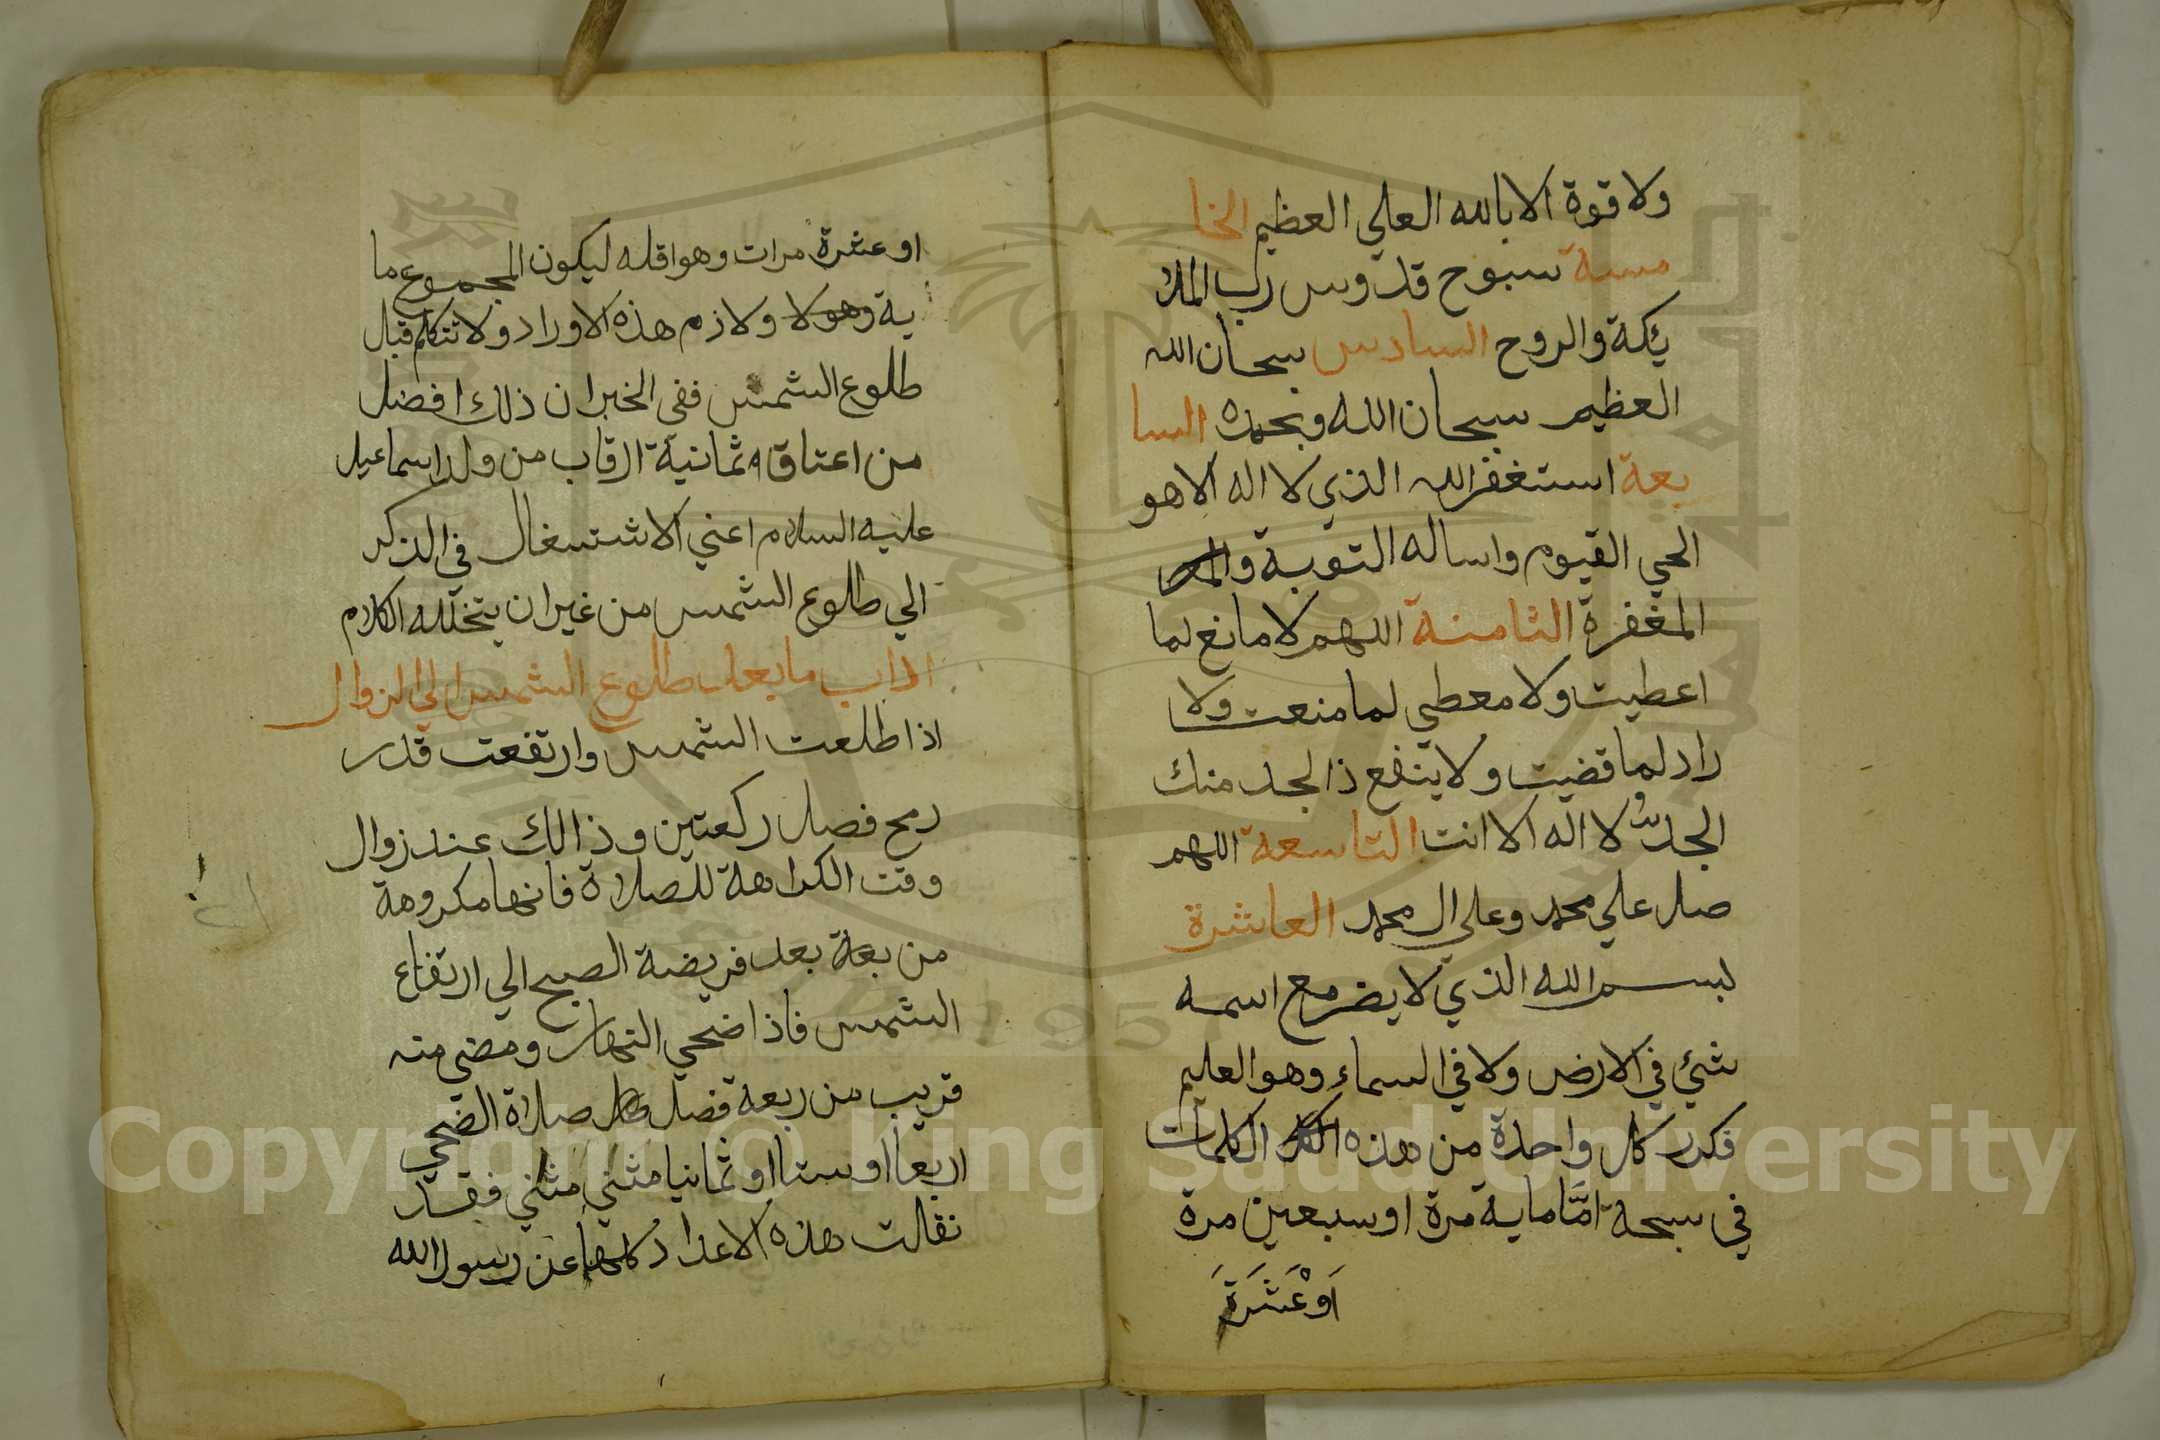 ولا قوة الا بالله العلي العظيم الخا
مسة سبوح قدوس رب الملا
يكة والروح السادس سبحان الله
العظيم سبحان الله وبحمده السا
بعة استغفر الله الذي لا اله الا هو
الحي القيوم واساله التوبة و
المغفرة الثامنة اللهم لا مانع لما
اعطيت ولا معطي لما منعت ولا
راد لما قضيت ولا ينفع ذا الجد منك
الجد لا اله الا انت التاسعة اللهم
صل علي محمد وعلي ال محمد العاشرة
بسم الله الذي لا يضر مع اسمه
شئ في الارض ولا في السماء وهو العليم
فكرر كل واحدة من هذه الكلمات
في سبحة امّا ماية مرة او سبعين مرة
اَوْ عَشَرَةَ
او عشرة مرات وهو اقله ليكون المجموع ما
ية ولازم هذه الاوراد ولا تتكلم قبل
طلوع الشمس ففي الخبر ان ذلك افضل
من اعتاق ثمانية الرقاب من ولد اسماعيل
عليه السلام اعني الاشتغال في الذكر
الي طلوع الشمس من غير ان يتخلله الكلام
اداب ما بعد طلوع الشمس الي الزوال
اذا طلعت الشمس وارتفعت قدر
رمح فصل ركعتين وذالك عند زوال
وقت الكراهة للصلاة فانها مكروهة
من بعد فريضة الصبح الي ارتفاع
الشمس فاذا اضحي النهار ومضي منه
قريب من ربعة فصل صلاة الضحي
اربعا او ستا او ثمانيا مثني مثني فقد
نقلت هذه الاعداد كلها عن رسول الله
Copyright © King Saud University
195